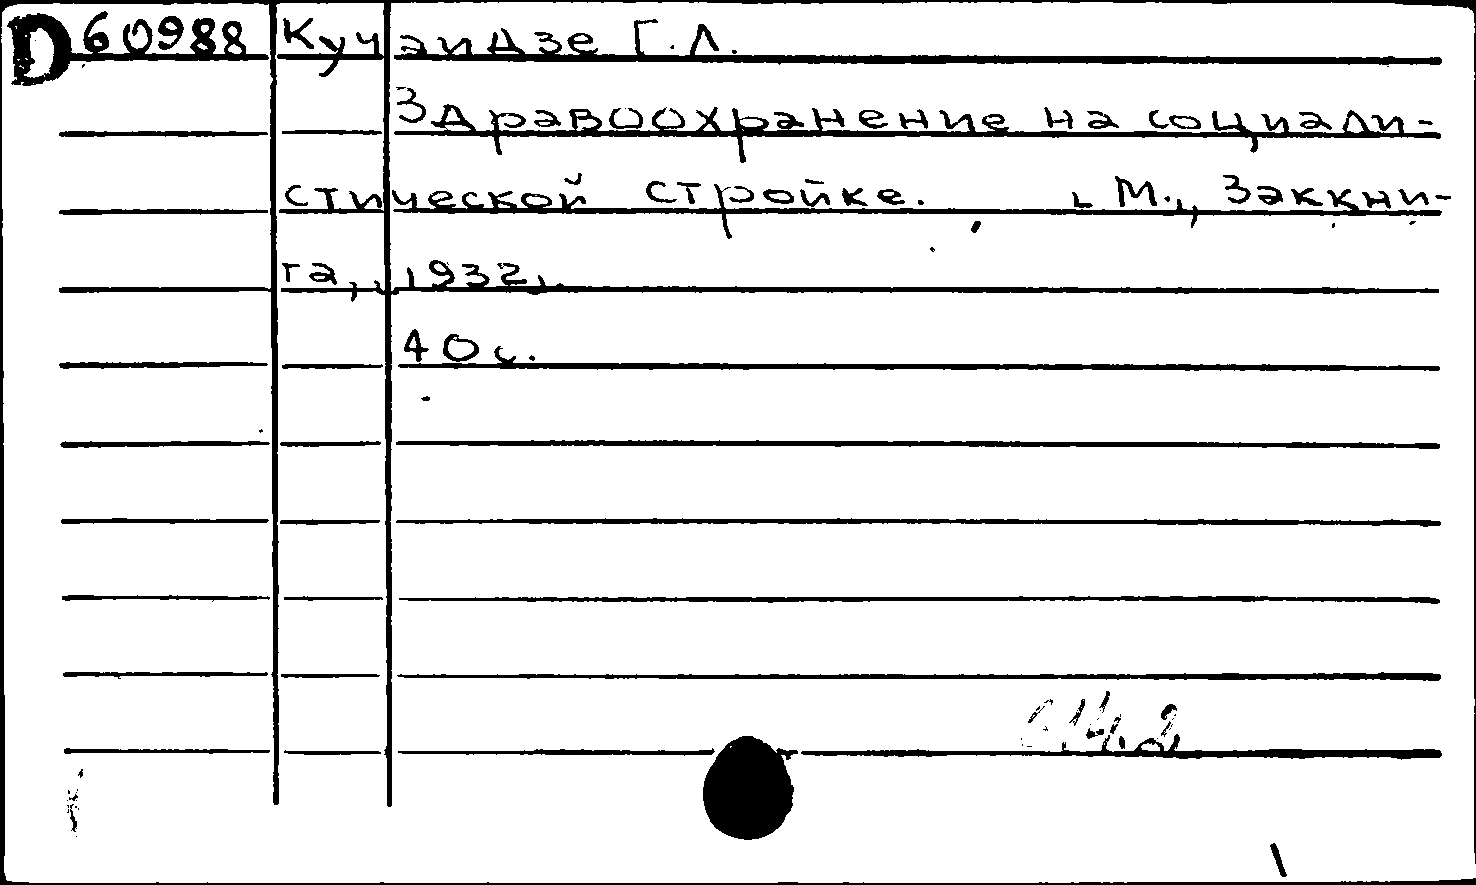 D 60988 Кучаидзе Г.Л.
Здравоохранение на социали-
стической стройке. М., Заккни-
га, 1932.
40 с.